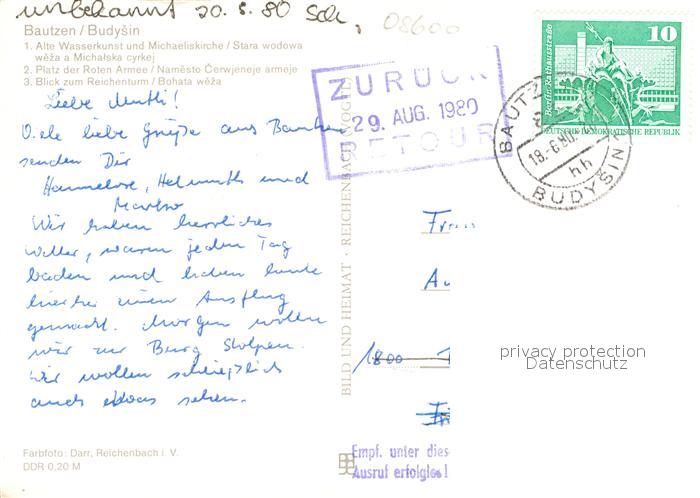 unbekannt 20. 8. 80 Sch.
08600
Bautzen / Budyšin
1. Alte Wasserkunst und Michaeliskirche / Stara wodowa
wěža a Michalska cyrkej
2. Platz der Roten Armee / Naměsto Čerwjeneje armeje
3. Blick zum Reichenturm / Bohata wěža
Liebe Mutti!
Viele liebe Grüße aus Bautzen
senden Dir
Hannelore, Helmuth und
Wir haben herrliches
Wetter, waren jeden Tag
baden und haben heute
hierher einen Ausflug
gemacht. Morgen wollen
wir zur Burg Stolpen.
Wir wollen schließlich
auch etwas sehen.
Farbfoto: Darr, Reichenbach i. V.
DDR 0,20 M
BILD UND HEIMAT · REICHENBACH (VOGTL)
ZURÜCK
29. AUG. 1980
RETOUR
BAUTZEN
18.-8.80
hh
BUDYŠIN
Berlin, Rathausstraße
10
DEUTSCHE DEMOKRATISCHE REPUBLIK
Frau
1800
Empf. unter dies
Ausruf erfolglos!
privacy protection
Datenschutz